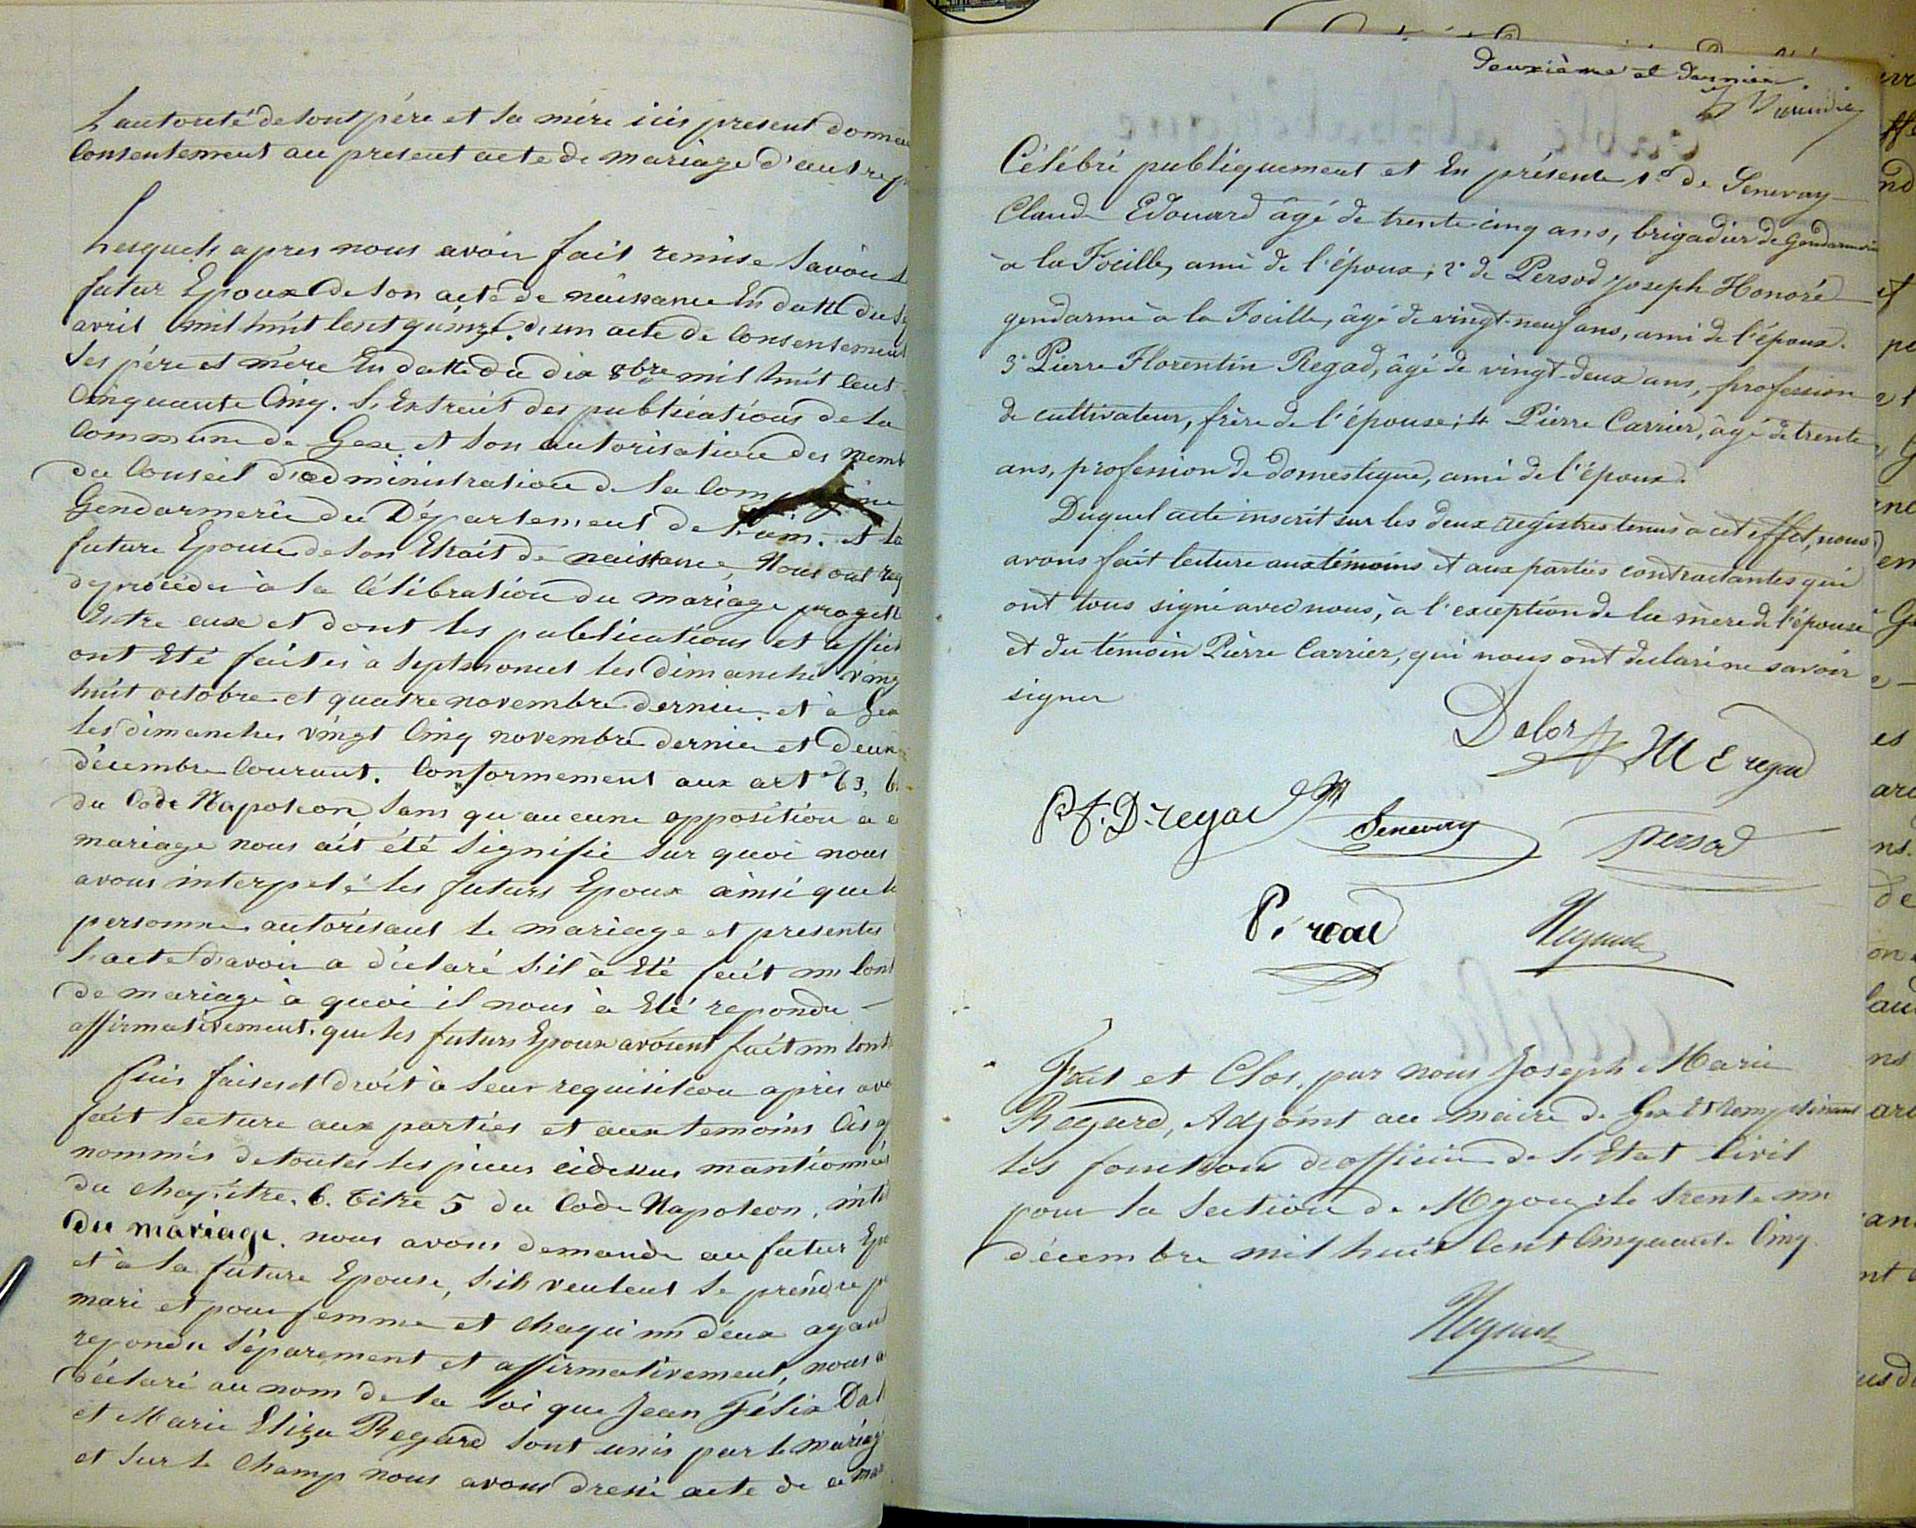 L'autorité de sont père et sa mère icis present donne
Consentement au present acte de mariage d'autre p
Lesquels apres nous avoir fait remise Savoir
futur Epoux de son acte de naissance En datte du
avril mil huit Cent quinze. d'un acte de Consentement
Ses père et mère En datte du dix 8bre mil huit Cent
Cinquante Cinq. L'Extrait des publications de la
Commune de Gex et Son autorisation des memb
du Conseil d'administration de la Com
Gendarmerie du Département de l'ain. et la
future Epouse de son Etrait de naissance, Nous ont req
de procéder à la Célébration du mariage progetté
Entre eux et dont les publications et affich
ont Eté faites à Septmoncel les dimanche ving
huit octobre et quatre novembre dernier. et à Gex
les dimanches vingt Cinq novembre dernier et deux
décembre Courant. Conformement aux art 63, 6
du Code Napoleon Sans qu'aucune opposition a ce
mariage nous ait été Signifié Sur quoi nous
avons interpelé les futurs Epoux ainsi que le
personne autorisant le mariage et presentes
l'acte d'avoir a déclaré S'il à Eté fait un Cont
de mariage à quoi il nous à Eté repondu
affirmativement. que les futurs Epoux avoient fait un Cont
Puis faisent droit à leur requisition après avo
fait lecture aux parties et aux temoins Cis a
nommés de toutes les pieces cidessus mantionnée
du chapitre. 6. titre 5 du Code Napoleon, intit
du mariage. nous avons demandé au futur Epo
et à la future Epouse, S'ils veulent Se prendre po
mari et pour femme et chaqu'un d'eux ayant
repondu Séparement et affirmativement, nous a
déclaré au nom de la loi que Jean Félix Dal
et Marie Eliza Regard Sont unis par le mariag
et Sur le Champ nous avons dressé acte de ce ma
deuxième et dernier
Célébré publiquement et En présente 1° de Senevay
Claude Edouard âgé de trente cinq ans, brigadier de Gendarmerie
à la Foucille, ami de l'époux; 2° de Persod Joseph Honoré
gendarme à la Foucille, âgé de vingt-neuf ans, ami de l'époux.
3° Pierre Florentin Regad, âgé de vingt-deux ans, profession
de cultivateur, frère de l'épouse; 4 Pierre Carrier, âgé de trente
ans, profession de domestique, ami de l'époux.
Duquel acte inscrit sur les deux registres tenus à cet effet, nous
avons fait lecture aux témoins et aux parties contractantes qui
ont tous signé avec nous, à l'exception de la mère de l'épouse
et du témoin Pierre Carrier, qui nous ont declaré ne savoir
signer
Dalor M E regad
P. f. D regad Senevay persod
P. read Regard
Fait et Clos, par nous Joseph Marie
Regard, Adjoint au maire de Gex Et remplissant
les fonctions d'officier de l'Etat Civil
pour la Section de Mijoux le trente un
décembre mil huit Cent Cinquante Cinq.
Regard